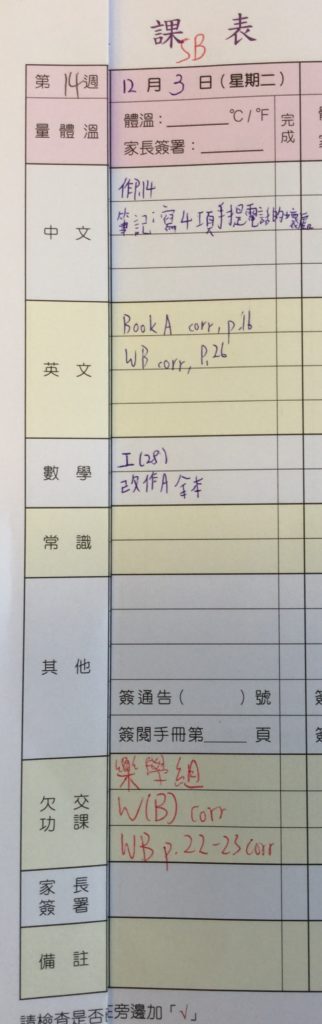 課表
5B
第14週 12月3日(星期二)
量體溫 體溫：______°C/°F 完成
家長簽署：______
中文
作P.14
筆記：寫4項手提電話的壞處
英文
Book A corr, p.16
WB corr, P.26
數學
工(28)
改作A全本
常識
其他
簽通告( )號
簽閱手冊第____頁
欠交功課
樂學組
W(B) corr
WB p.22-23 corr
家長簽署
備註
請檢查是否 在旁邊加「√」